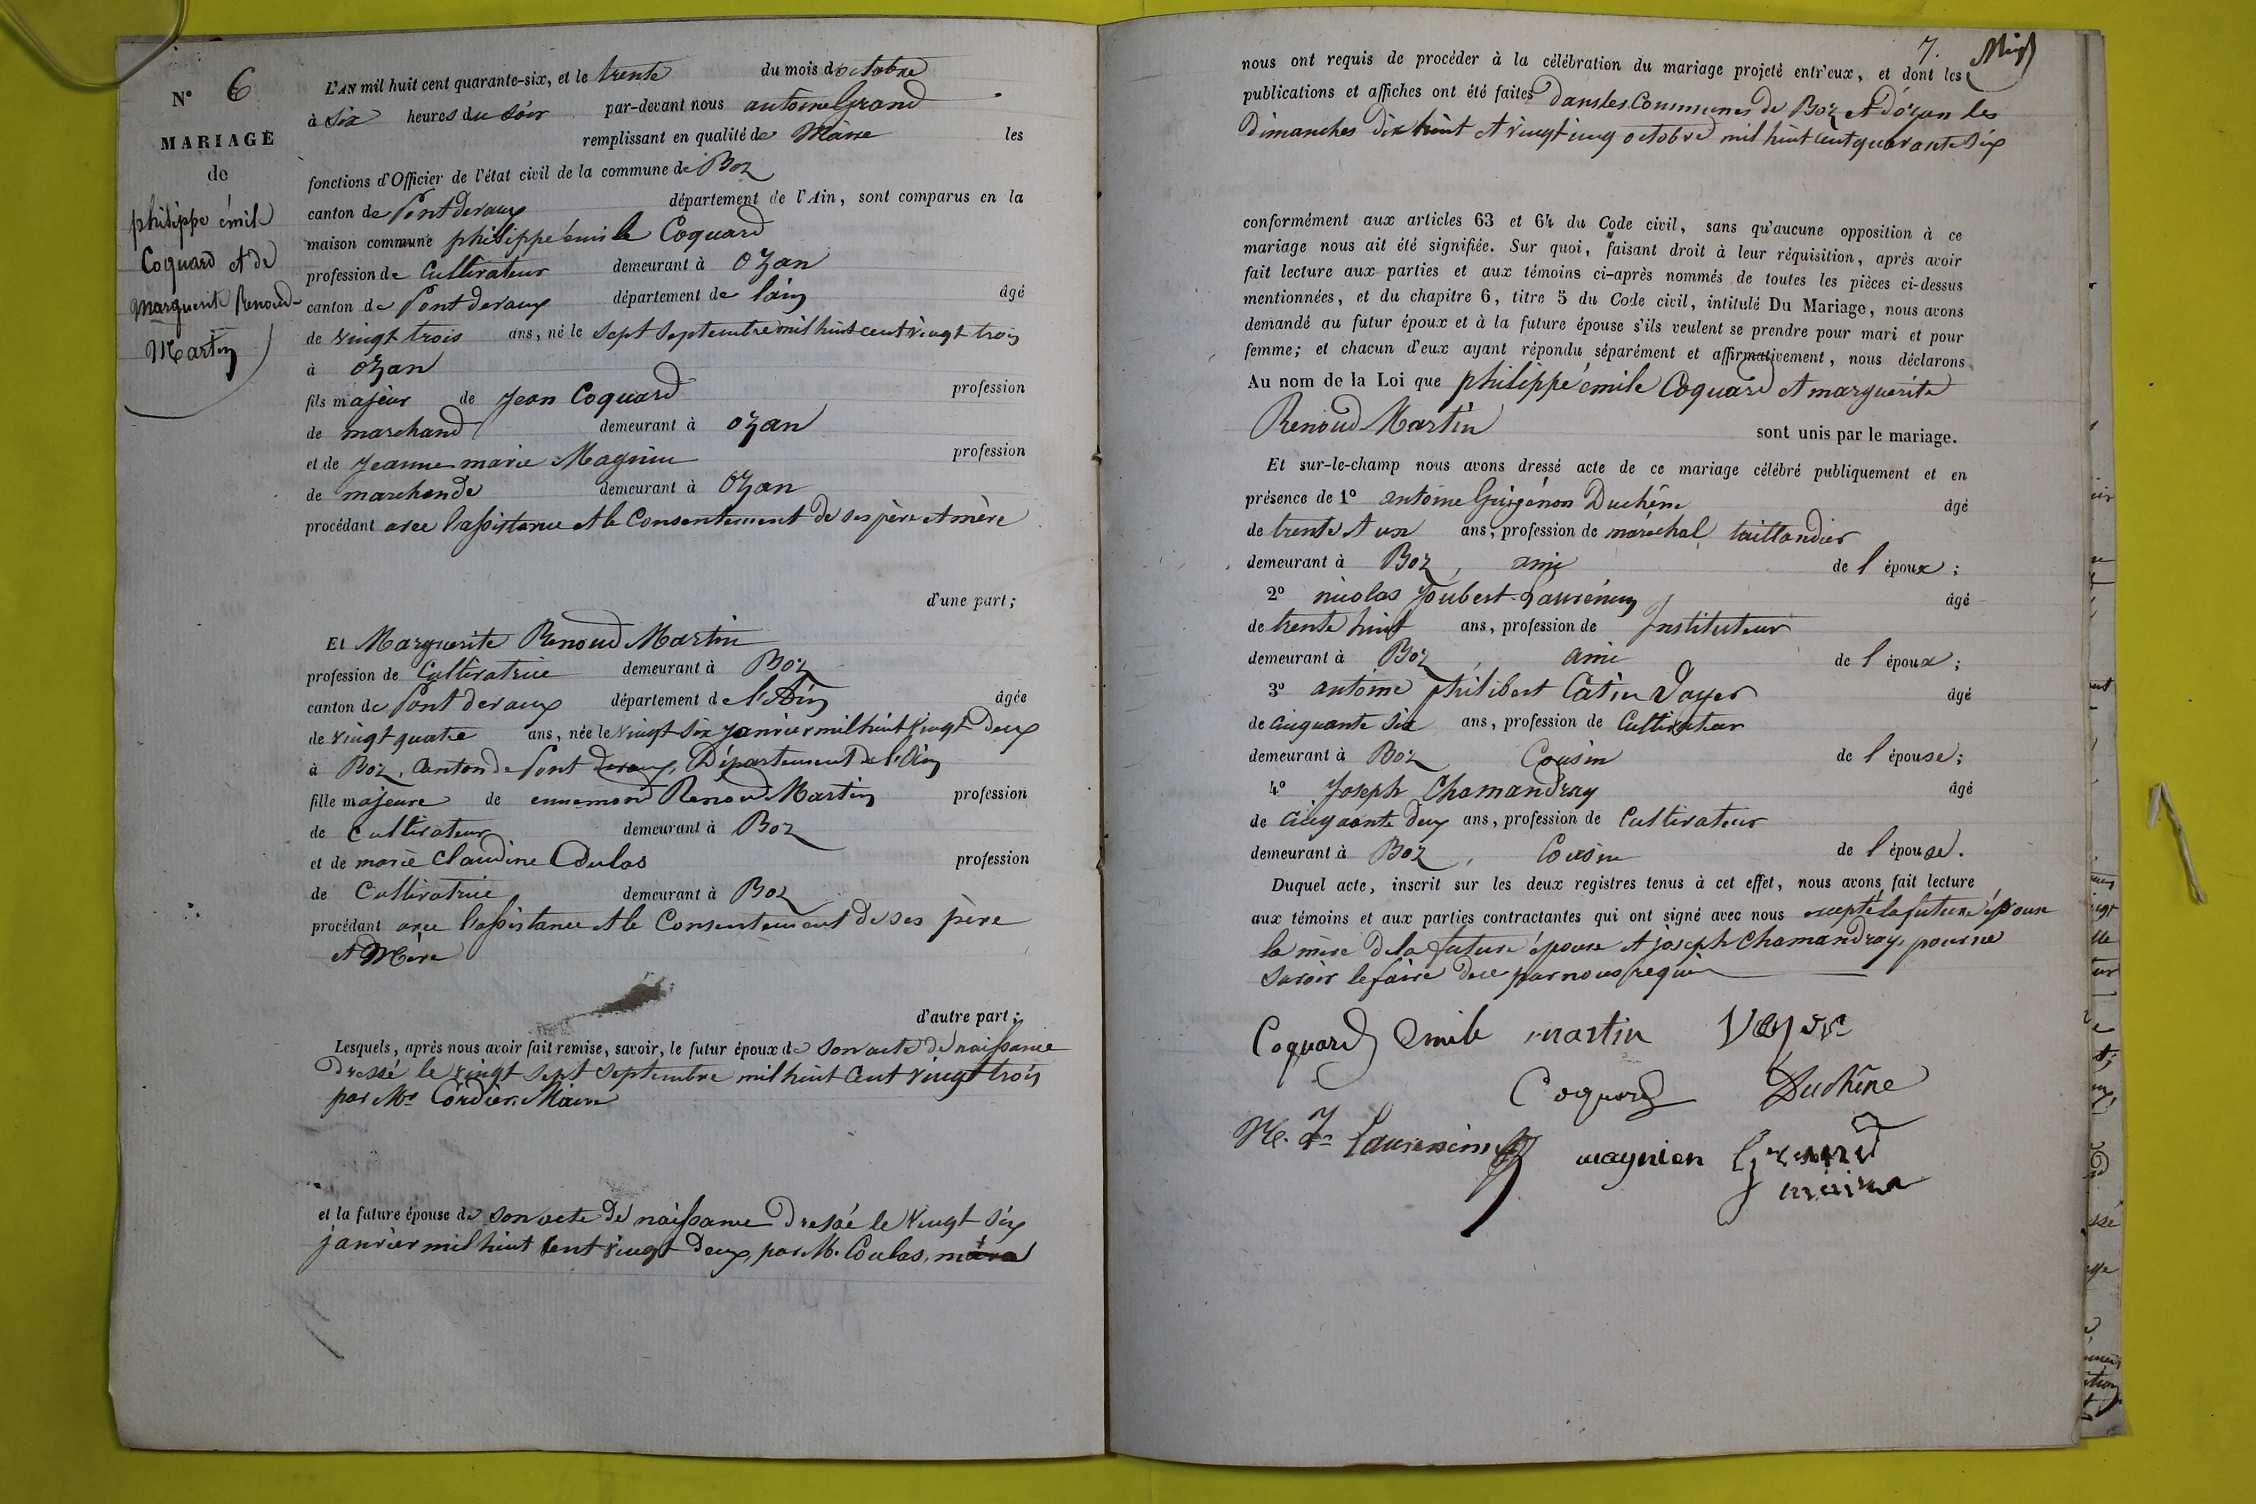 N° 6
MARIAGE
de
philippe émile
Coquard et de
marguerite Renoud-
Martin
L'AN mil huit cent quarante-six, et le trente du mois d'octobre
à six heures du soir par-devant nous antoine Grand
remplissant en qualité de Maire les
fonctions d'Officier de l'état civil de la commune de Boz
canton de Pont devaux département de l'Ain, sont comparus en la
maison commune philippe émile Coquard
profession de Cultivateur demeurant à Ozan
canton de Pont devaux département de l'ain âgé
de vingt trois ans, né le sept septembre mil huit cent vingt trois
à ozan
fils majeur de Jean Coquard profession
de marchand demeurant à ozan
et de Jeanne marie Magnien profession
de marchande demeurant à Ozan
procédant avec l'assistance et le Consentement de ses père et mère
d'une part;
Et Marguerite Renoud Martin
profession de Cultivatrice demeurant à Boz
canton de Pont devaux département de l'Ain âgée
de vingt quatre ans, née le vingt six janvier mil huit vingt deux
à Boz, Canton de Pont devaux, Département de l'Ain
fille majeure de ennemond Renoud Martin profession
de Cultivateur demeurant à Boz
et de marie Claudine Coulas profession
de Cultivatrice demeurant à Boz
procédant avec l'assistance et le Consentement de ses père
et Mère
d'autre part;
Lesquels, après nous avoir fait remise, savoir, le futur époux de son acte de naissance
dressé le vingt sept septembre mil huit Cent vingt trois
par Mr Cordier, Maire
et la future épouse de son acte de naissance dressé le vingt six
janvier mil huit Cent vingt deux, par M. Coulas, maire
7.
nous ont requis de procéder à la célébration du mariage projeté entr'eux, et dont les
publications et affiches ont été faites dans les Communes de Boz et d'ozan les
Dimanches dix huit et vingt cinq octobre mil huit cent quarante six
conformément aux articles 63 et 64 du Code civil, sans qu'aucune opposition à ce
mariage nous ait été signifiée. Sur quoi, faisant droit à leur réquisition, après avoir
fait lecture aux parties et aux témoins ci-après nommés de toutes les pièces ci-dessus
mentionnées, et du chapitre 6, titre 5 du Code civil, intitulé Du Mariage, nous avons
demandé au futur époux et à la future épouse s'ils veulent se prendre pour mari et pour
femme; et chacun d'eux ayant répondu séparément et affirmativement, nous déclarons
Au nom de la Loi que philippe émile Coquard et marguerite
Renoud Martin sont unis par le mariage.
Et sur-le-champ nous avons dressé acte de ce mariage célébré publiquement et en
présence de 1° antoine Guigénon Duchêne âgé
de trente et un ans, profession de maréchal taillandier
demeurant à Boz, ami de l'époux;
2° nicolas Joubert Laurencin âgé
de trente huit ans, profession de Instituteur
demeurant à Boz, ami de l'époux;
3° antoine philibert Catin Vayer âgé
de cinquante six ans, profession de Cultivateur
demeurant à Boz Cousin de l'épouse;
4° Joseph Chamandray âgé
de cinquante deux ans, profession de Cultivateur
demeurant à Boz, Cousin de l'épouse.
Duquel acte, inscrit sur les deux registres tenus à cet effet, nous avons fait lecture
aux témoins et aux parties contractantes qui ont signé avec nous excepté la future épouse
la mère de la future épouse et joseph Chamandray, pour ne
savoir le faire de ce par nous requis
Coquard Emile martin Vayer
Coquard Duchêne
N. Jn Laurencin magnien Grand
maire